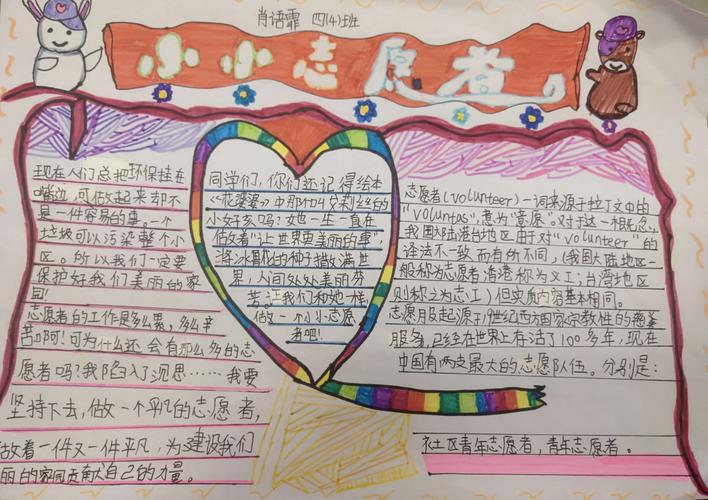 肖语霏 四(4)班
小小志愿者。
现在人们总把环保挂在
嘴边,可做起来却不
是一件容易的事。一个
垃圾可以污染整个小
区。所以我们一定要
保护好我们美丽的家
园!
志愿者的工作是多么累,多么辛
苦啊!可为什么还会有那么多的志
愿者吗?我陷入了沉思……我要
坚持下去,做一个平凡的志愿者,
做着一件又一件平凡,为建设我们
丽的家园贡献自己的力量。
同学们,你们还记得绘本
《花婆婆》中那个叫艾莉丝的
小女孩吗?她一生一直在
做着"让世界更美丽的事",
将冰氩花的种子播满世
界,人间处处美丽芬
芳。让我们和她一样
做一个小小志愿
者吧!
志愿者(volunteer)一词来源于拉丁文中的
"voluntas",意为"意愿"。对于这一相概念,
我国大陆港台地区由于对"volunteer"的
译法不一致而有所不同,(我国大陆地区一
般称为志愿者清港称为义工;台湾地区
则称之为志工)但实质内容基本相同。
志愿服起源于19世纪西方国家宗教性的慈善
服务,已经在世界上存活了100多年,现在
中国有两支最大的志愿队伍。分别是:
社区青年志愿者,青年志愿者。